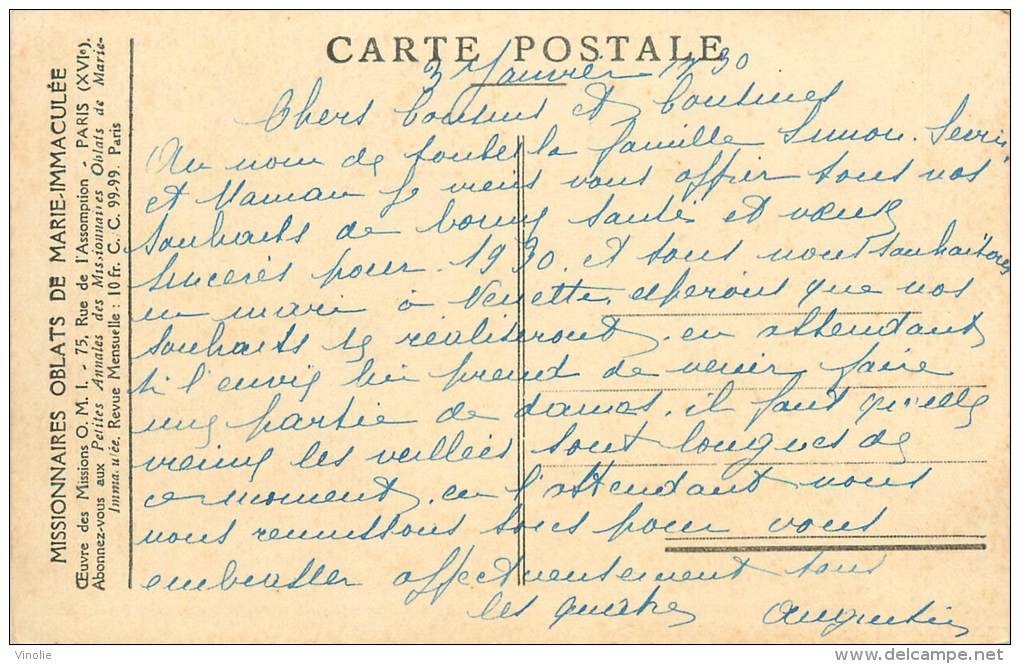 CARTE POSTALE
MISSIONNAIRES OBLATS DE MARIE-IMMACULÉE
Œuvre des Missions O. M. I. - 75, Rue de l'Assomption - PARIS (XVIe).
Abonnez-vous aux Petites Annales des Missionnaires Oblats de Marie-
Immaculée. Revue Mensuelle : 10 fr. C. C. 99-99. Paris
3 Janvier 1930
Chers Cousins et Cousines
Au nom de toute la famille Simon.
et Maman je viens vous offrir tous nos
souhaits de bonne santé et vœux
sincères pour 1930. et tous nous souhaitons
un mari à esperons que nos
souhaits se réaliseront. en attendant
si l'envie lui prend de venir faire
une partie de dames. il faut qu'elle
vienne les veillées sont longues de
ce moment. en l'attendant nous
nous reunissons tous pour vous
embrasser affectueusement tous
les quatre Augustin
Vinolie
delcampe.net